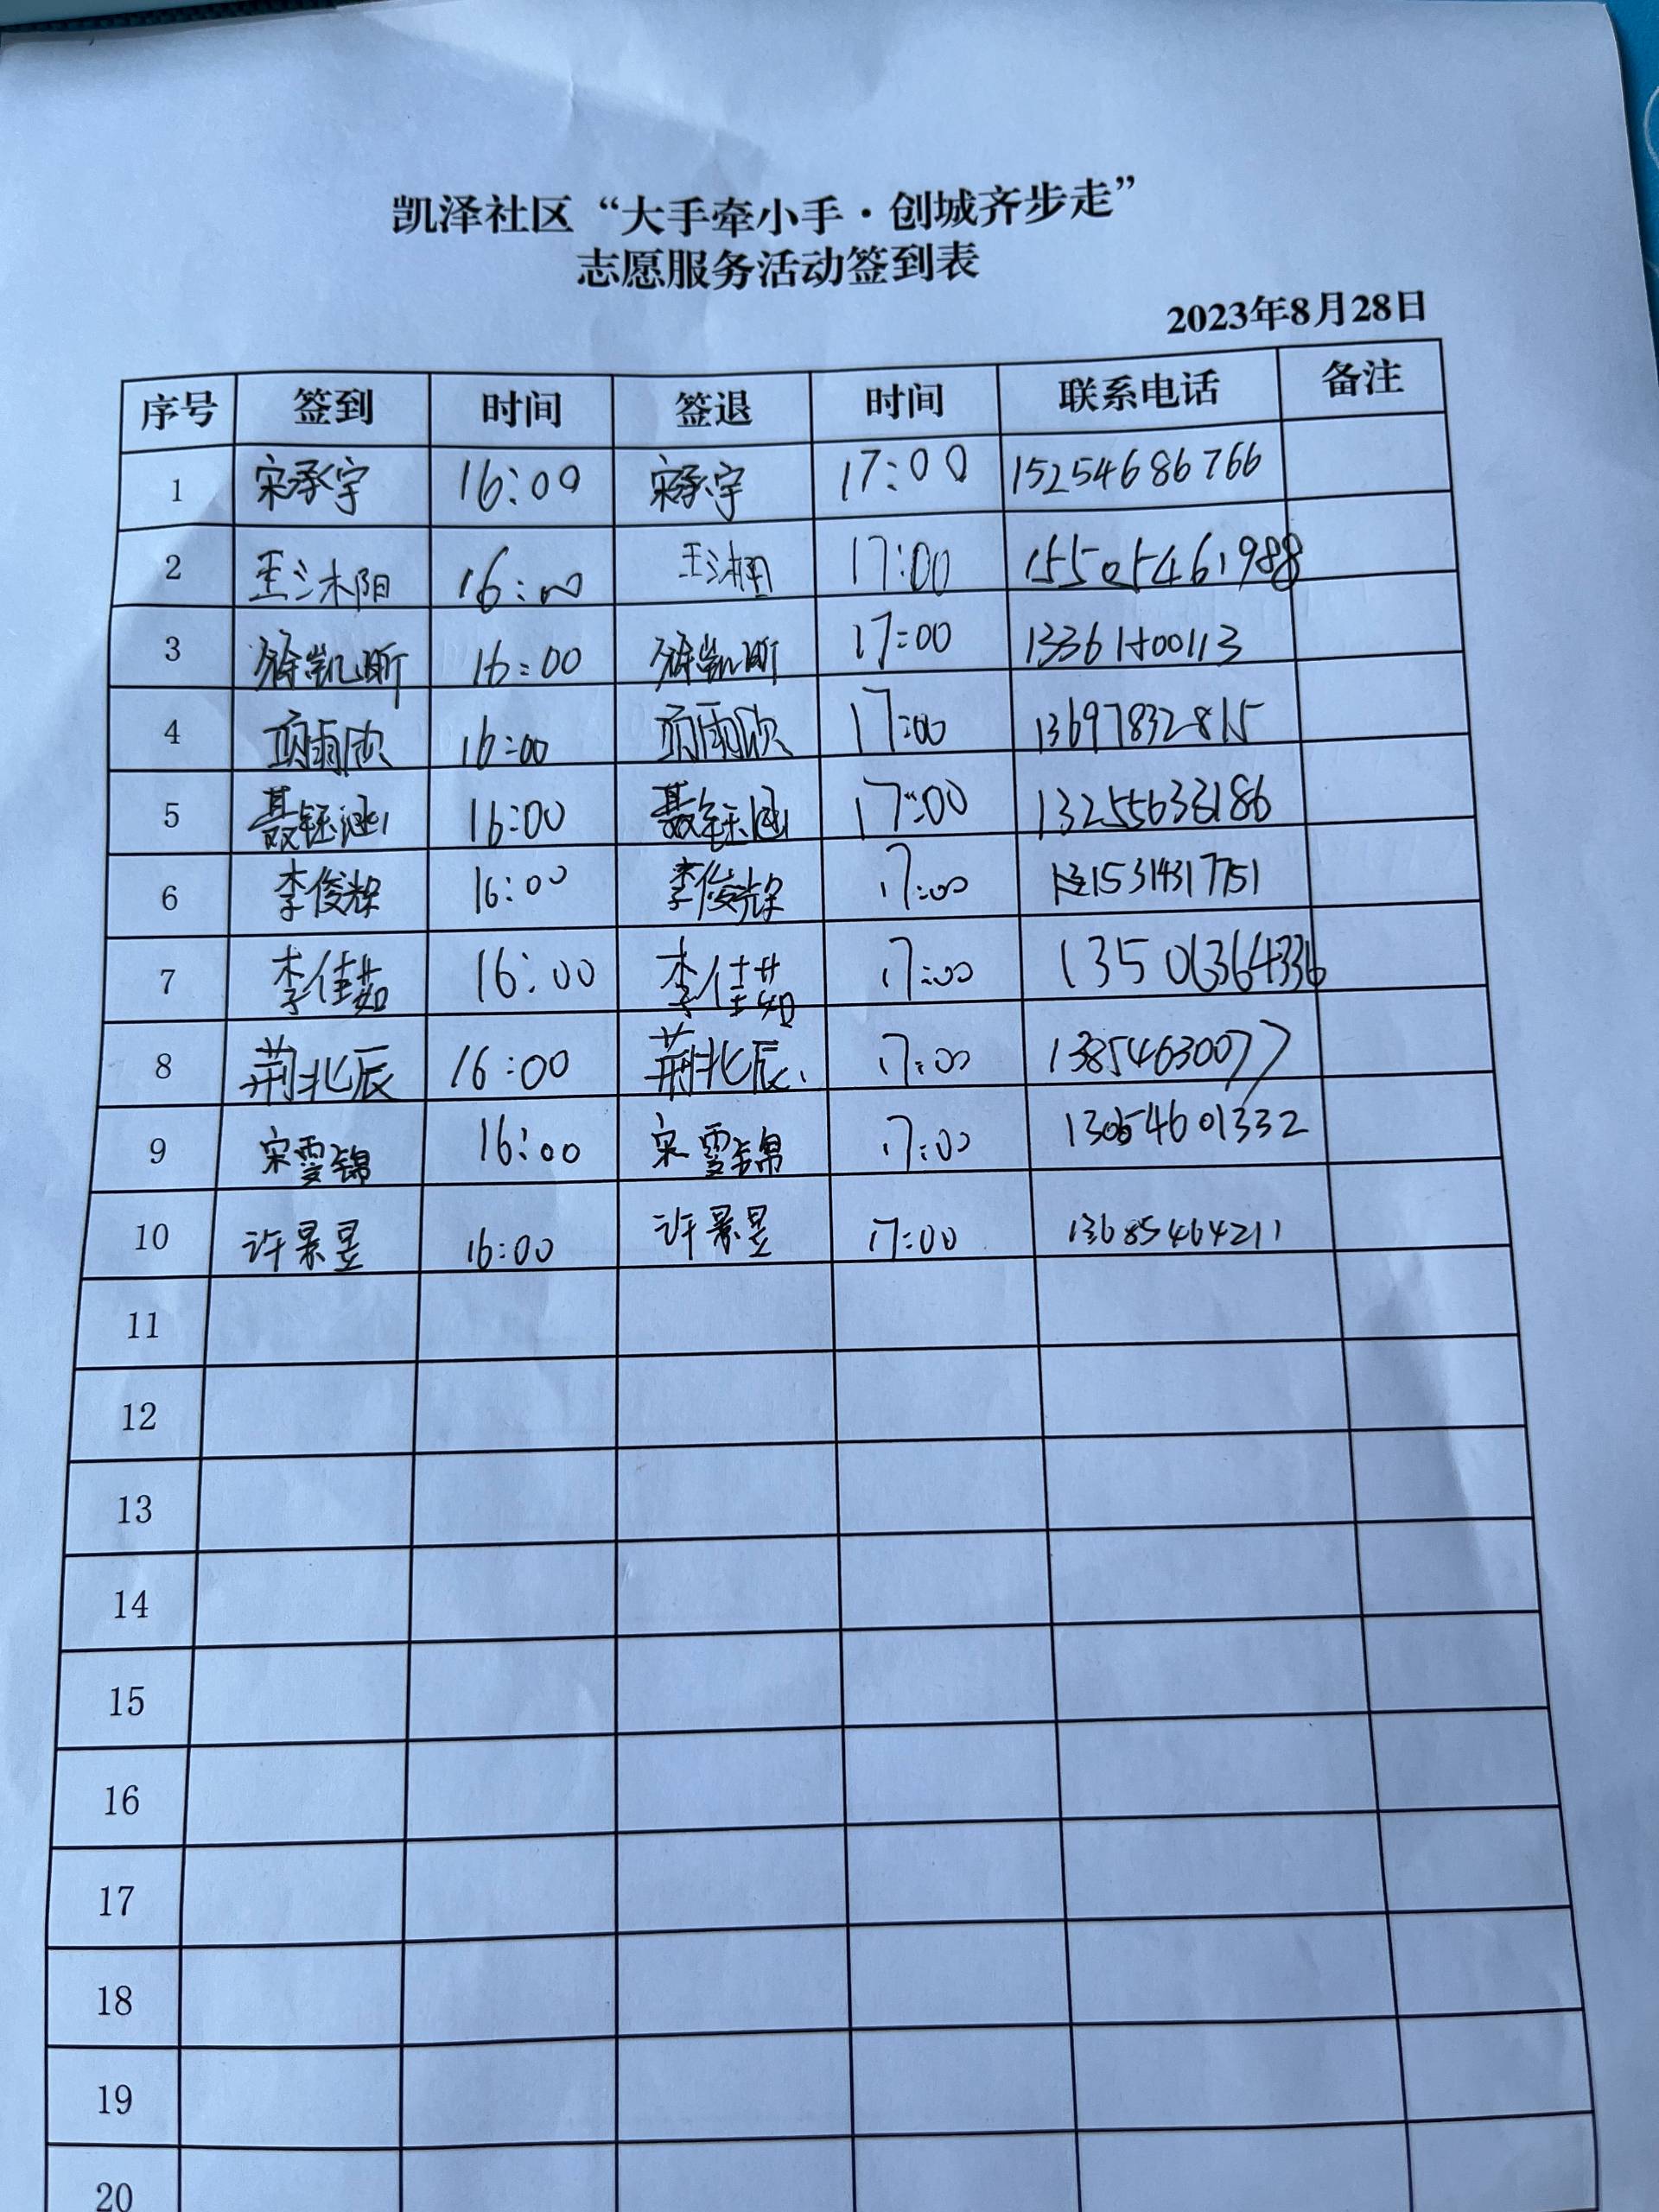 凯泽社区“大手牵小手·创城齐步走”
志愿服务活动签到表
2023年8月28日
序号 签到 时间 签退 时间 联系电话 备注
1 宋承宇 16:00 宋承宇 17:00 15254686766
2 王沐阳 16:00 王沐阳 17:00 15505461988
3 徐凯昕 16:00 徐凯昕 17:00
4 项雨欣 16:00 项雨欣 17:00 13697832815
5 聂钰涵 16:00 聂钰涵 17:00 13255633186
6 李俊燦 16:00 李俊燦 17:00 15314317751
7 李佳茹 16:00 李佳茹 17:00 13506364336
8 荆北辰 16:00 荆北辰 17:00 13854630077
9 宋雯锦 16:00 宋雯锦 17:00 13054601332
10 许景昱 16:00 许景昱 17:00 13685464211
11
12
13
14
15
16
17
18
19
20